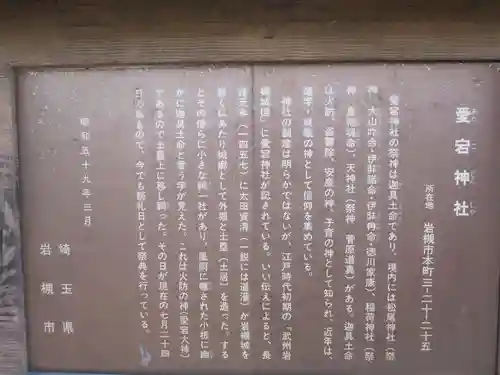 愛宕神社
あたごじんじゃ
所在地 岩槻市本町三-二十-二十五
愛宕神社の祭神は迦具土命であり、境内には松尾神社(祭
神、大山咋命・伊弉諾命・伊弉冉命・徳川家康)、稲荷神社(祭
神 倉稲魂命)、天神社(祭神 菅原道真)がある。迦具土命
は火防、盗難除、安産の神、子育の神として知られ、近年は、
の神として信仰を集めている。
神社の創建は明らかではないが、江戸時代初期の「武州岩
槻城図」に愛宕神社が記されている。いい伝えによると、長
禄元年(一四五七)に太田資清(一説には道灌)が岩槻城を
築くにあたり城郭として外堀と土塁(土居)を造った。する
とその傍らに小さな祠一社があり、風雨に曝された小板に幽
かに迦具土命と言う字が見えた。これは火防の神(愛宕大神)
であるので土塁上に移し祠った。その日が現在の七月二十四
日であるので、今でも縁礼日として祭典を行っている。
昭和五十九年三月
埼玉県
岩槻市